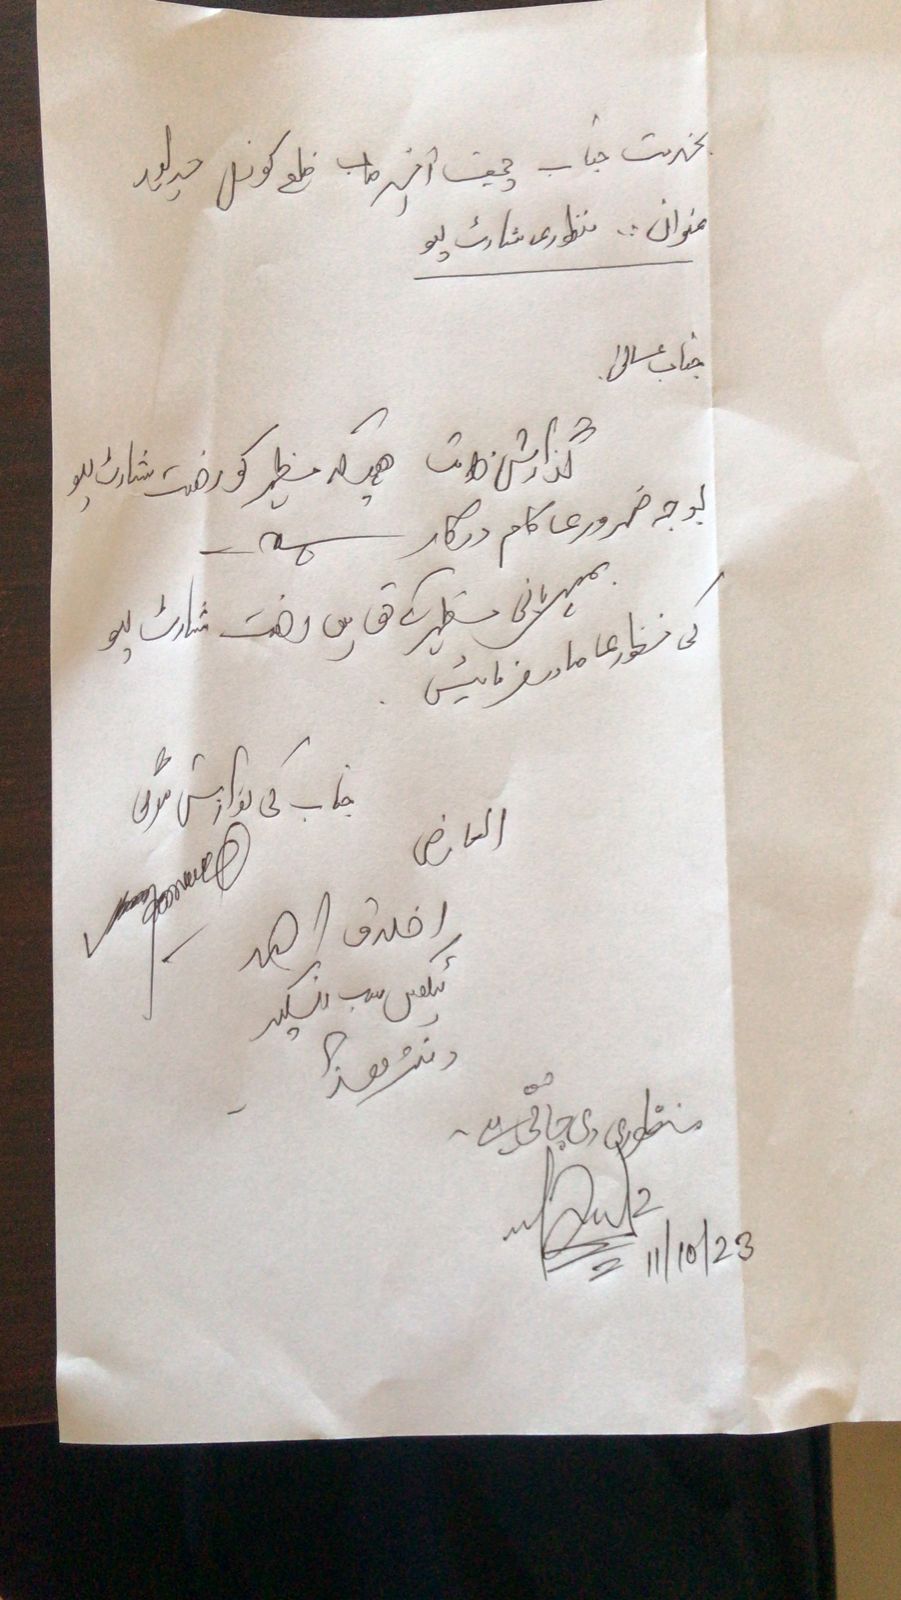 بخدمت جناب چیف آفیسر صاحب ضلع کونسل
عنوان :۔ منظوری شارٹ لیو
جناب عالی!
گذارش خدمت ہیکہ مظہر کو رخصت شارٹ لیو
بوجہ ضروری کام درکار ہے ۔
بمہربانی مظہر کے حق میں رخصت شارٹ لیو
کی منظوری صادر فرمائیں ۔
جناب کی نوازش ہوگی
العارض
اخلاق احمد
ٹیکس سب انسپکٹر
منظوری دی جاتی ہے ۔
11/10/23